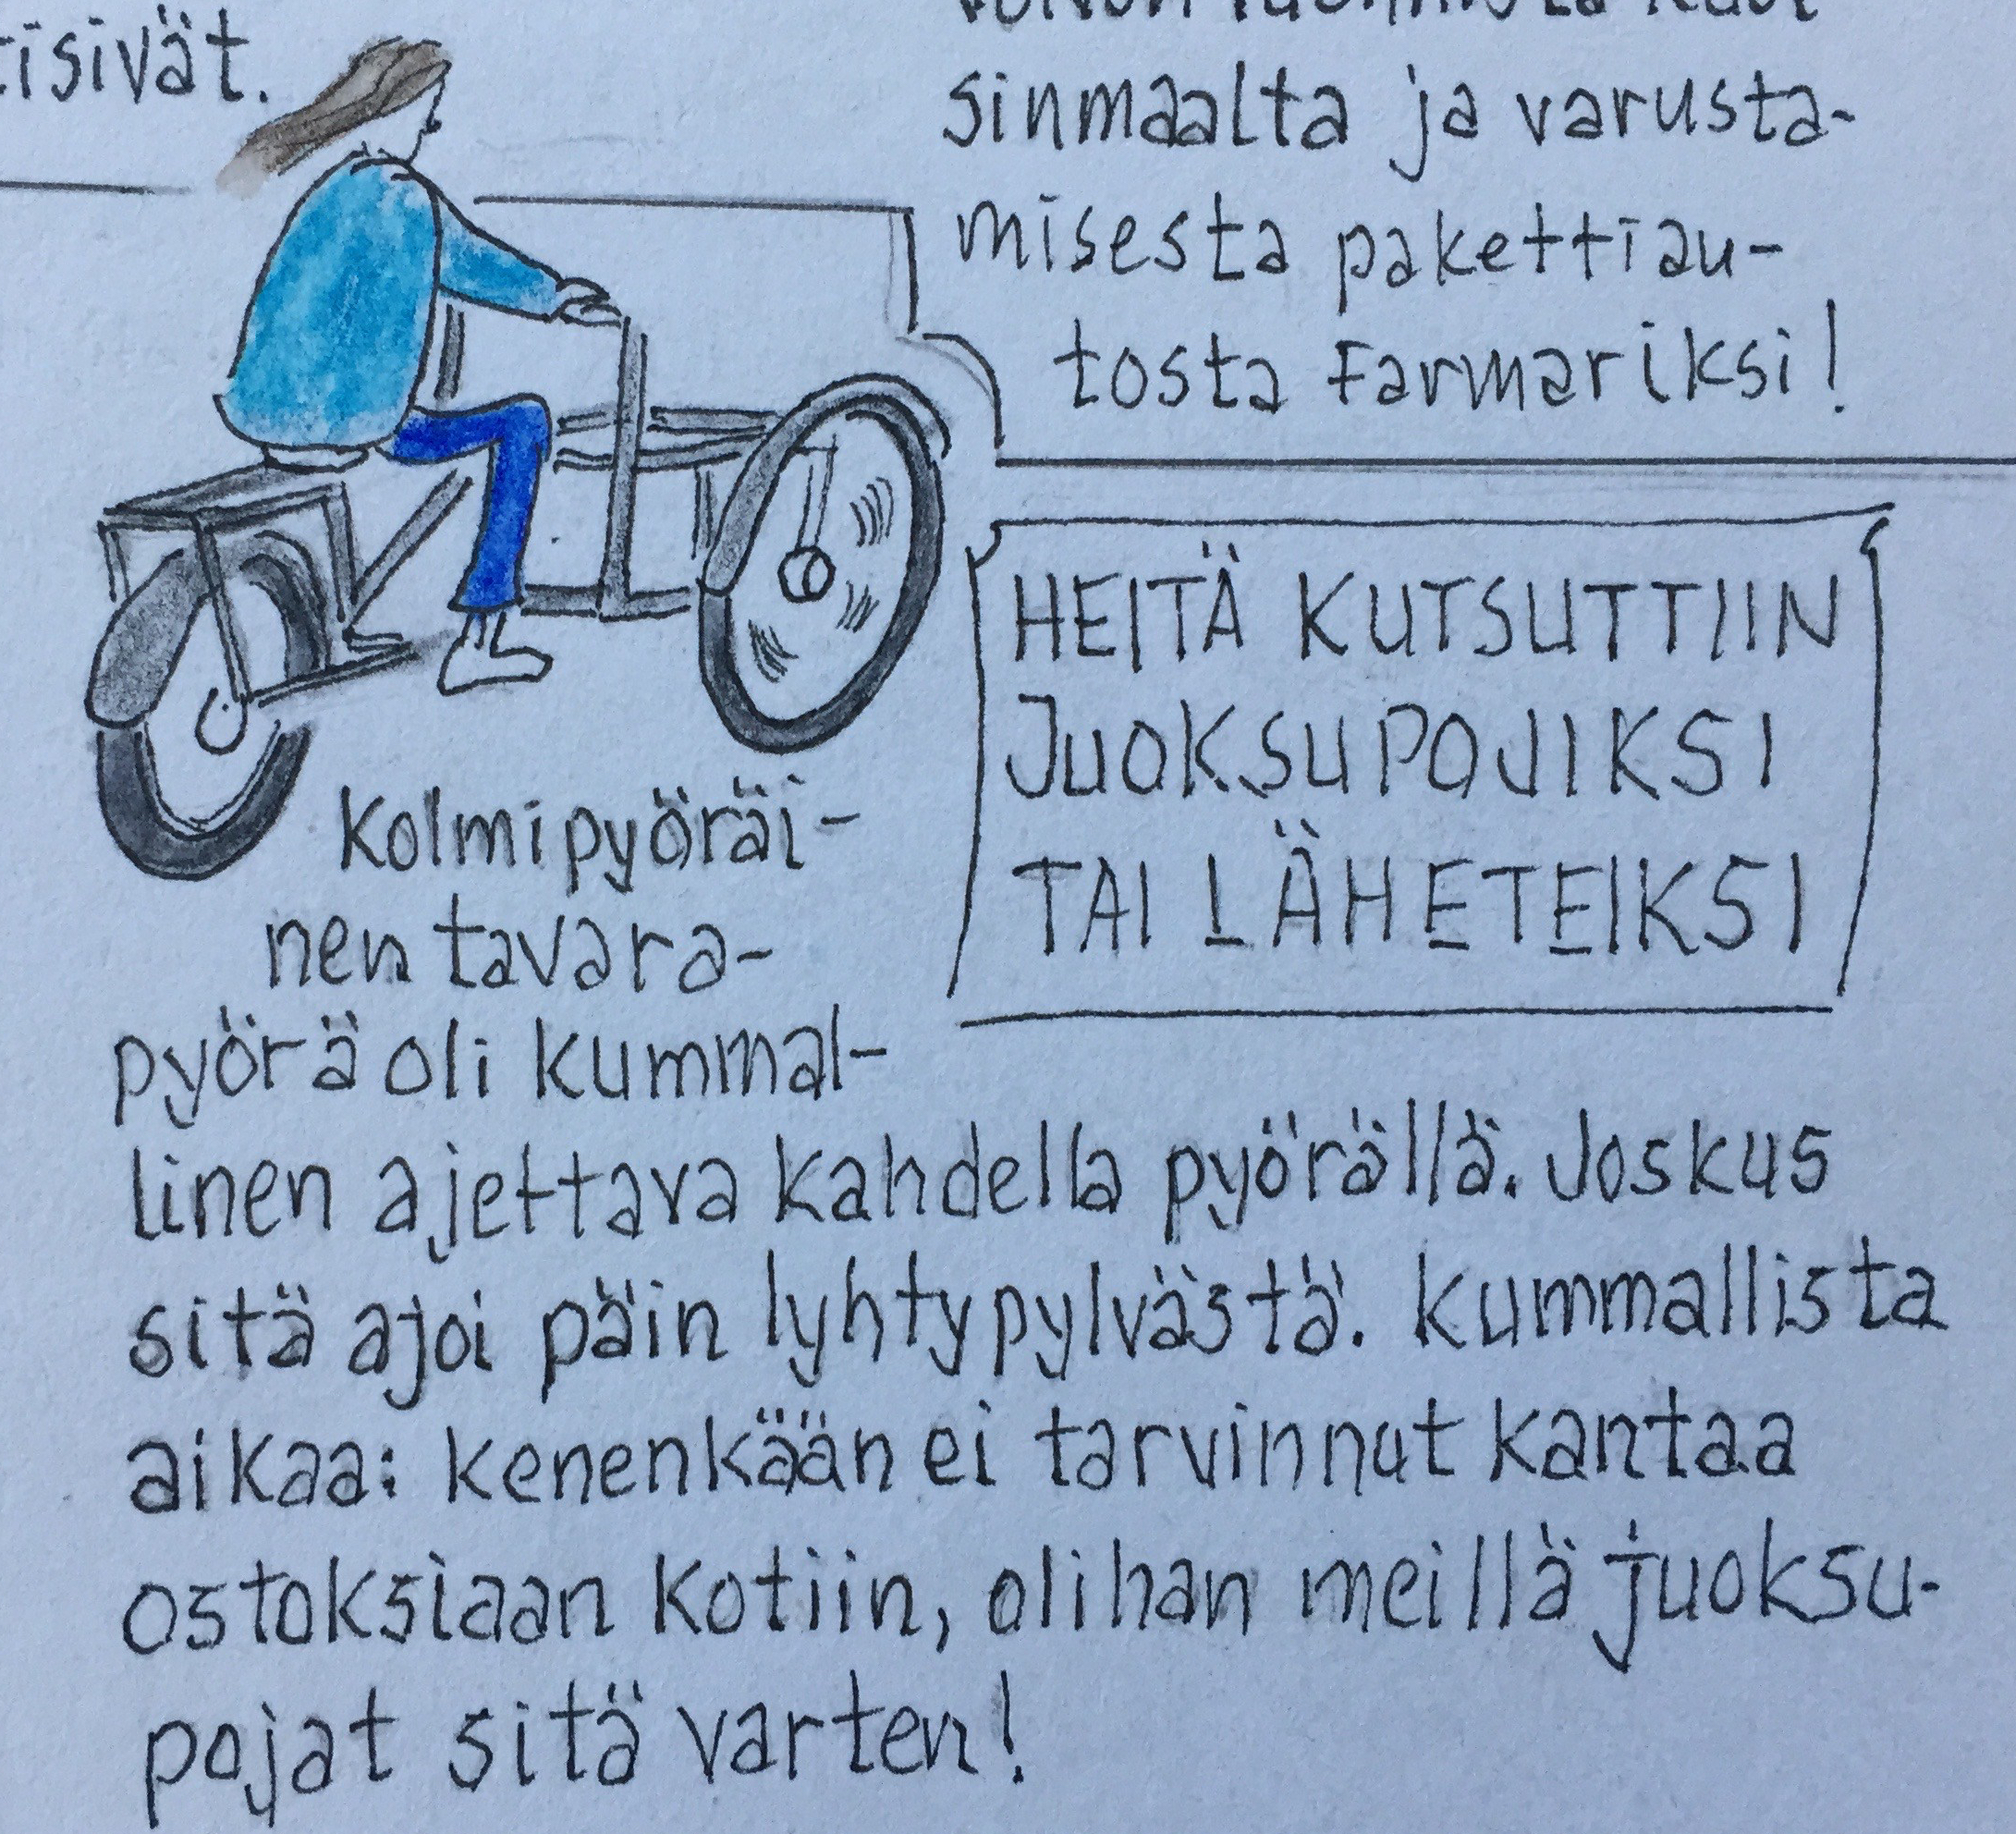 sinmaalta ja varusta-
misesta pakettiau-
tosta Farmariksi!
HEITÄ KUTSUTTIIN
JUOKSUPOJIKSI
TAI LÄHETEIKSI
Kolmipyöräi-
nen tavara-
pyörä oli kummal-
linen ajettava kahdella pyörällä. Joskus
sitä ajoi päin lyhtypylvästä. Kummallista
aikaa: kenenkään ei tarvinnut kantaa
ostoksiaan kotiin, olihan meillä juoksu-
pojat sitä varten!